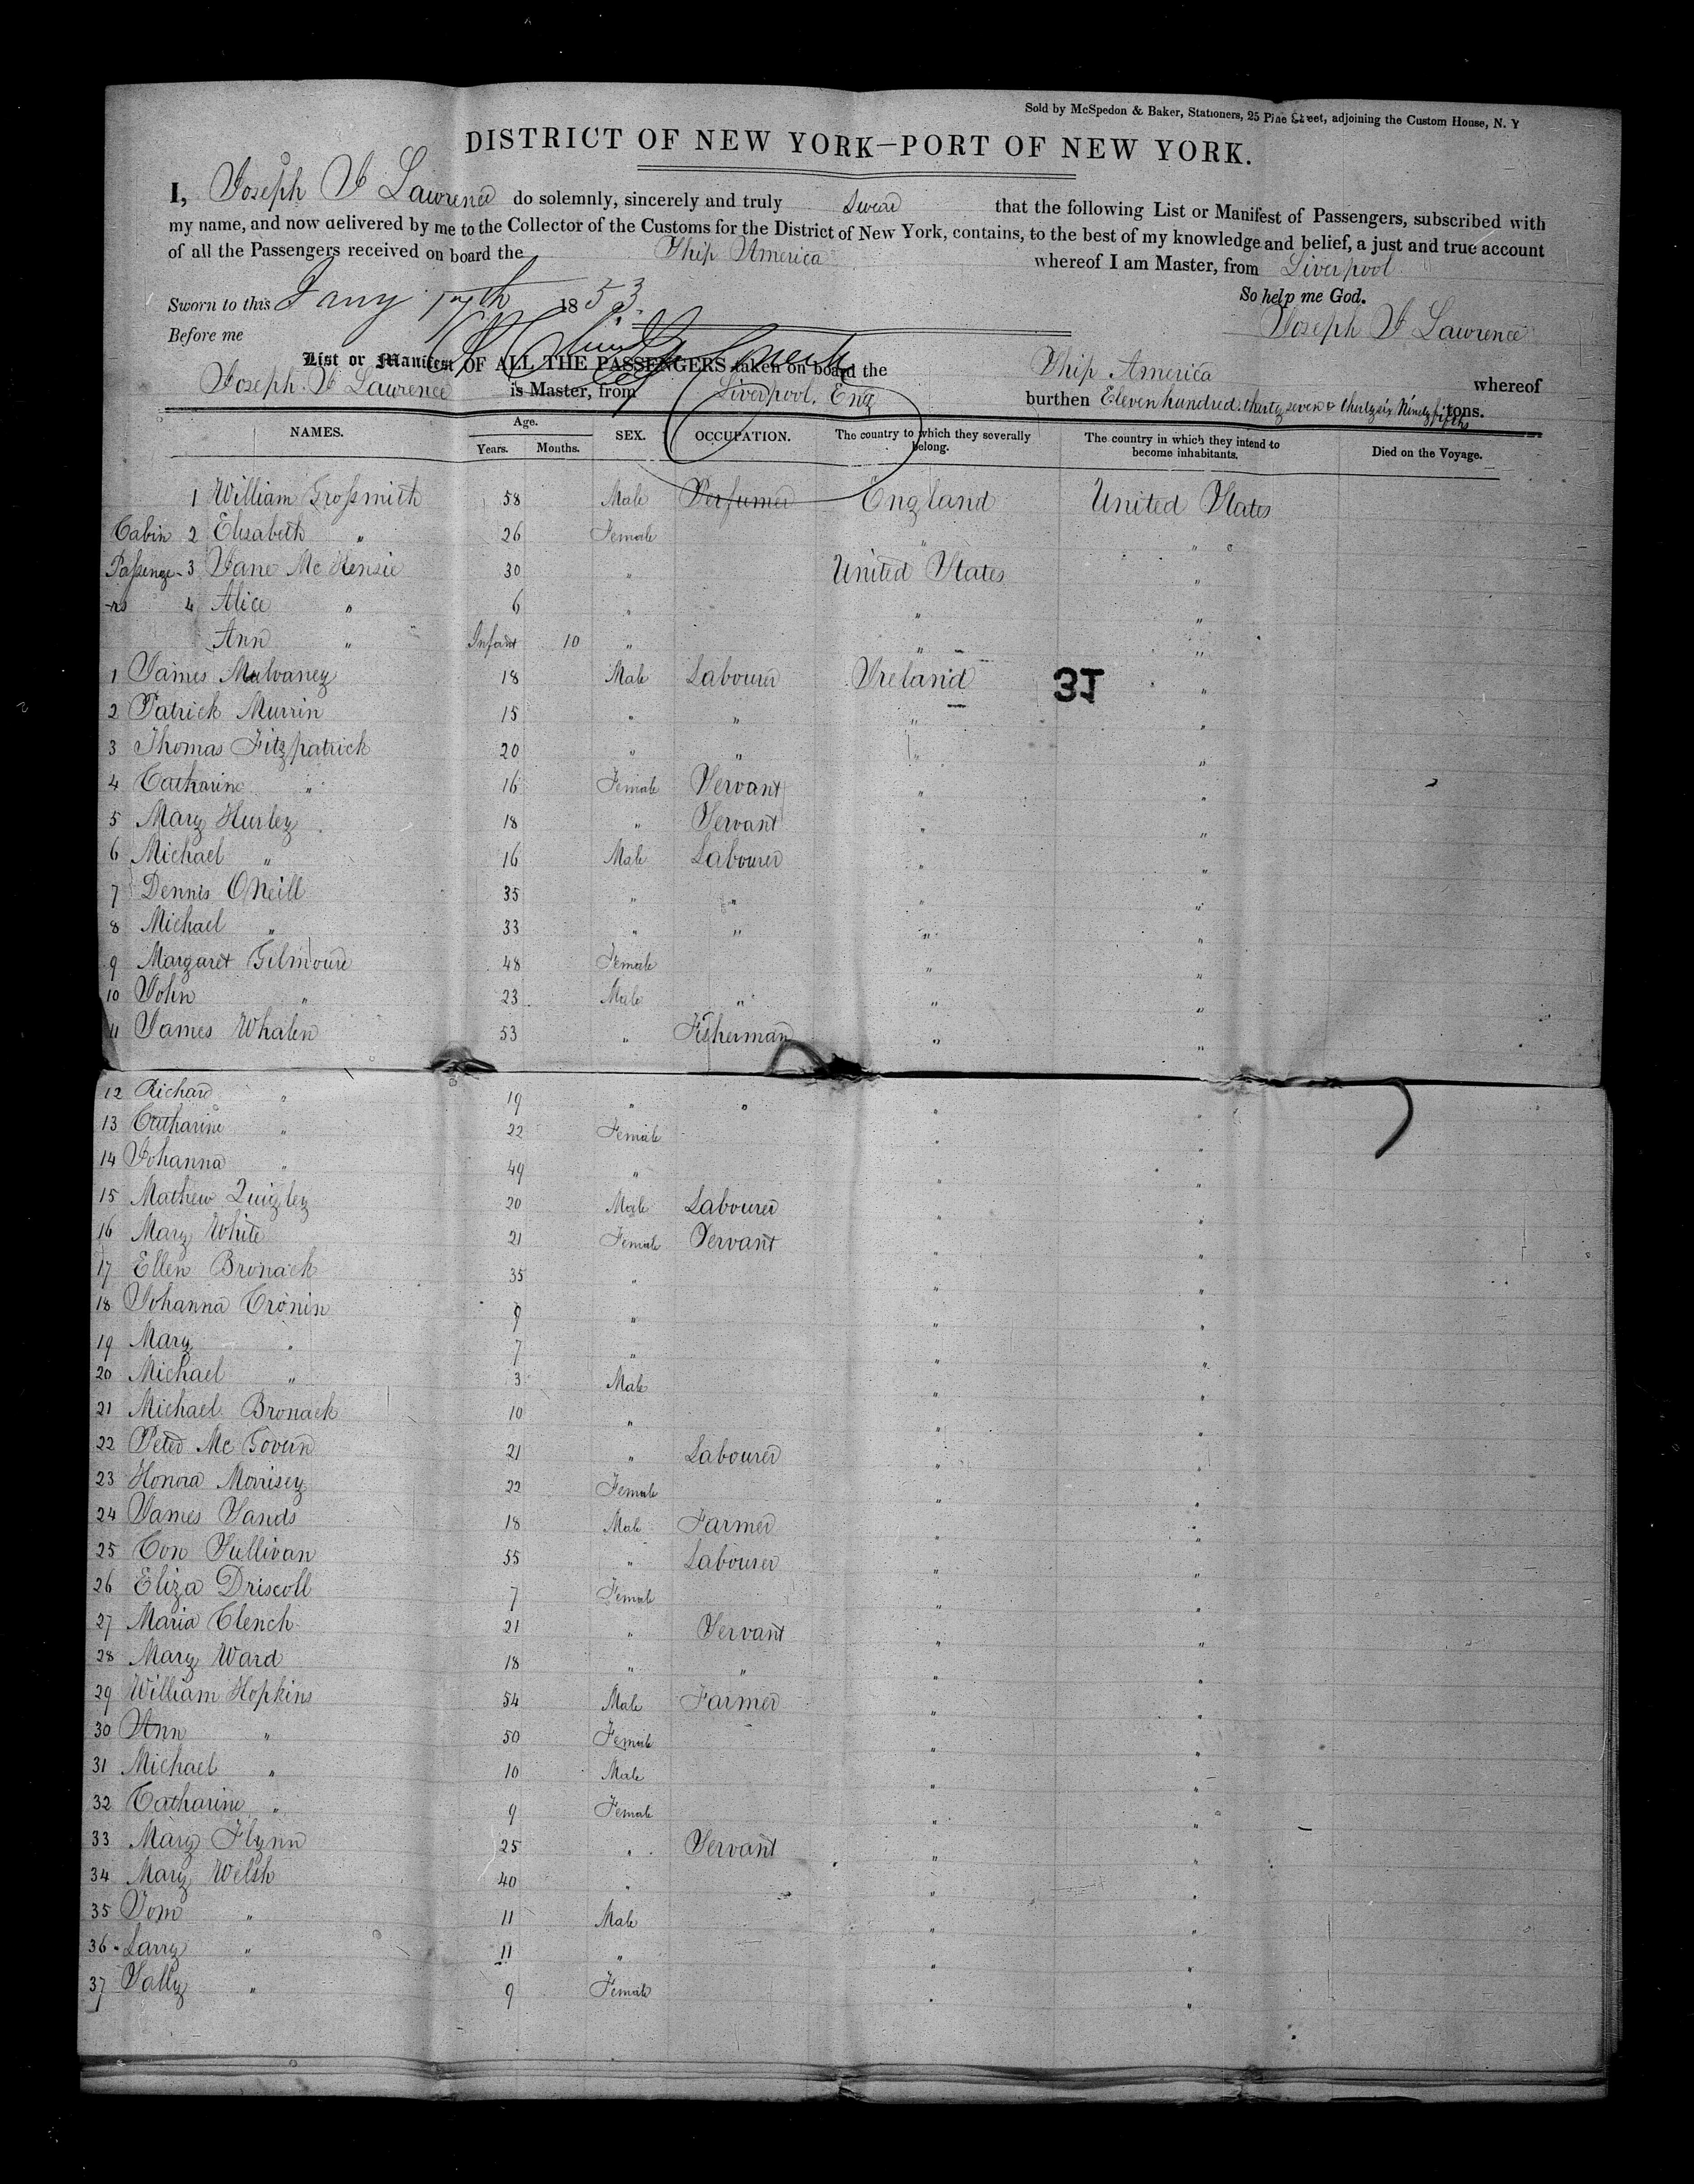 Sold by McSpedon & Baker, Stationers, 25 Pine Street, adjoining the Custom House, N. Y
DISTRICT OF NEW YORK—PORT OF NEW YORK.
I, Joseph J Lawrence do solemnly, sincerely and truly Swear that the following List or Manifest of Passengers, subscribed with
my name, and now delivered by me to the Collector of the Customs for the District of New York, contains, to the best of my knowledge and belief, a just and true account
of all the Passengers received on board the Ship America whereof I am Master, from Liverpool
So help me God.
Sworn to this Jany 17th 1853
Joseph J Lawrence
Before me
List or Manifest OF ALL THE PASSENGERS taken on board the Ship America whereof
Joseph J Lawrence is Master, from Liverpool, Eng burthen Eleven hundred thirty seven & thirty six Ninety fifths tons.
NAMES. Age. Years. Months. SEX. OCCUPATION. The country to which they severally belong. The country in which they intend to become inhabitants. Died on the Voyage.
1 William Grossmith 58 Male Perfumer England United States
Cabin 2 Elisabeth " 26 Female " " "
Passenge- 3 Jane McKensie 30 " United States "
-rs 4 Alice " 6 " " "
Ann " Infant 10 " " "
1 James Mulvaney 18 Male Labourer Ireland "
31
2 Patrick Murrin 15 " " " "
3 Thomas Fitzpatrick 20 " " " "
4 Catharine " 16 Female Servant " "
5 Mary Hurley 18 " Servant " "
6 Michael " 16 Male Labourer " "
7 Dennis ONeill 35 " " " "
8 Michael " 33 " " " "
9 Margaret Gilmoure 48 Female " "
10 John " 23 Male " " "
11 James Whalen 53 " Fisherman " "
12 Richard " 19 " " " "
13 Catharine " 22 Female " "
14 Johanna " 49 " " "
15 Mathew Quigley 20 Male Labourer " "
16 Mary White 21 Female Servant " "
17 Ellen Bronack 35 " " "
18 Johanna Cronin 9 " " "
19 Mary " 7 " " "
20 Michael " 3 Male " "
21 Michael Bronack 10 " " "
22 Peter McGovern 21 " Labourer " "
23 Honora Morrisey 22 Female " "
24 James Sands 18 Male Farmer " "
25 Con Sullivan 55 " Labourer " "
26 Eliza Driscoll 7 Female " "
27 Maria Clench 21 " Servant " "
28 Mary Ward 18 " " " "
29 William Hopkins 54 Male Farmer " "
30 Ann " 50 Female " "
31 Michael " 10 Male " "
32 Catharine " 9 Female " "
33 Mary Flynn 25 " Servant " "
34 Mary Welsh 40 " " "
35 Tom " 11 Male " "
36 Larry " 11 " " "
37 Sally " 9 Female " "